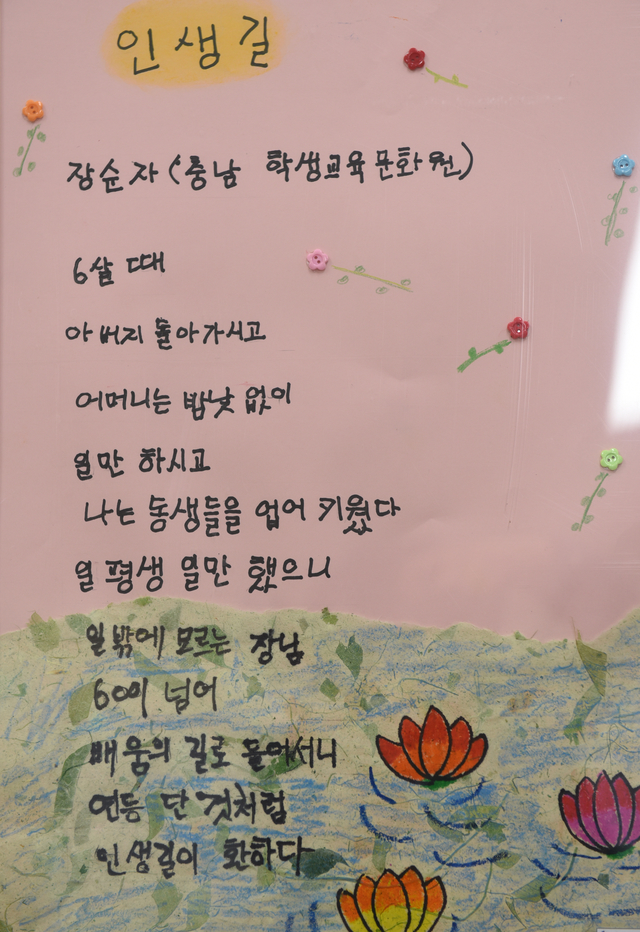 인생길
장순자(충남 학생교육문화원)
6살 때
아버지 돌아가시고
어머니는 밤낮 없이
일만 하시고
나는 동생들을 업어 키웠다
일 평생 일만 했으니
일 밖에 모르는 장남
60이 넘어
배움의 길로 들어서니
연등 단 것처럼
인생길이 환하다